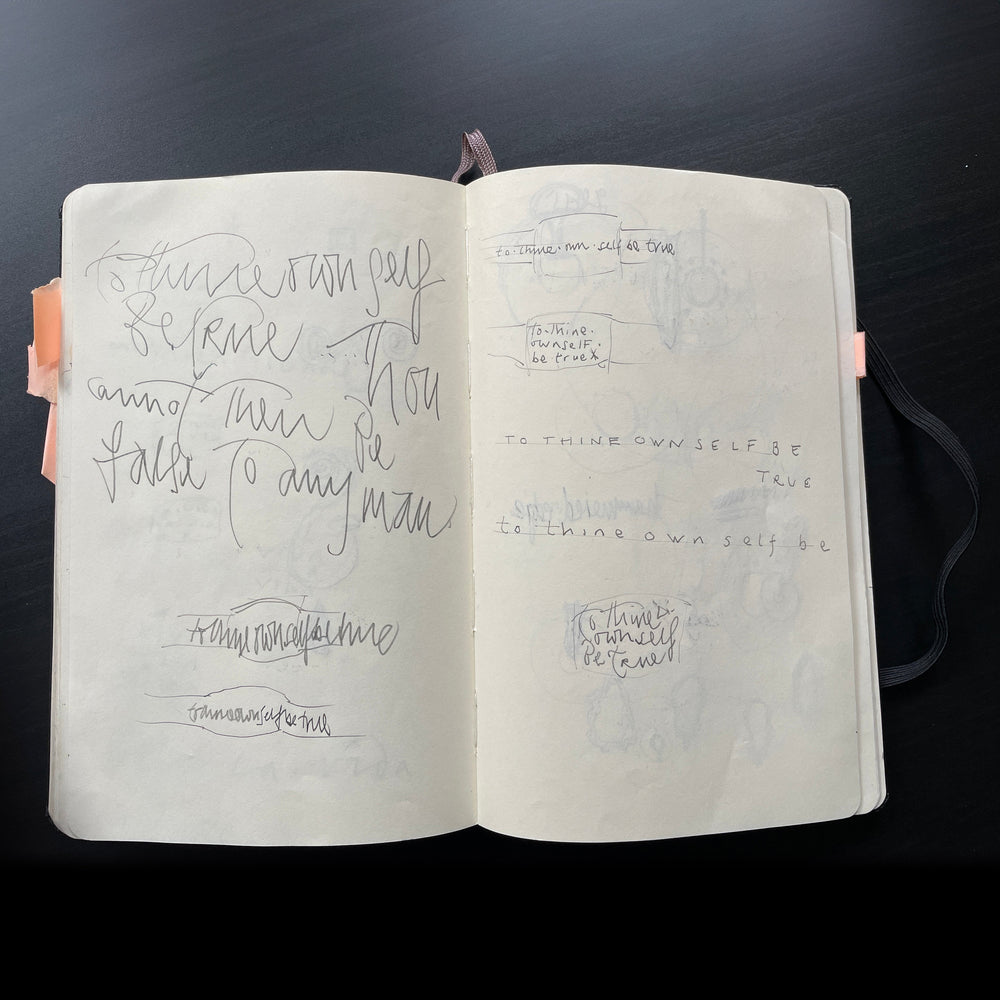 to thine own self
Be True Thou
cannot Then Be
false To any man.
to thine own self be true
to thine own self be true
to·thine·own·self be true
To·Thine·
ownself·
be true
TO THINE OWN SELF BE
TRUE
to thine own self be
To thine
ownself
Be True